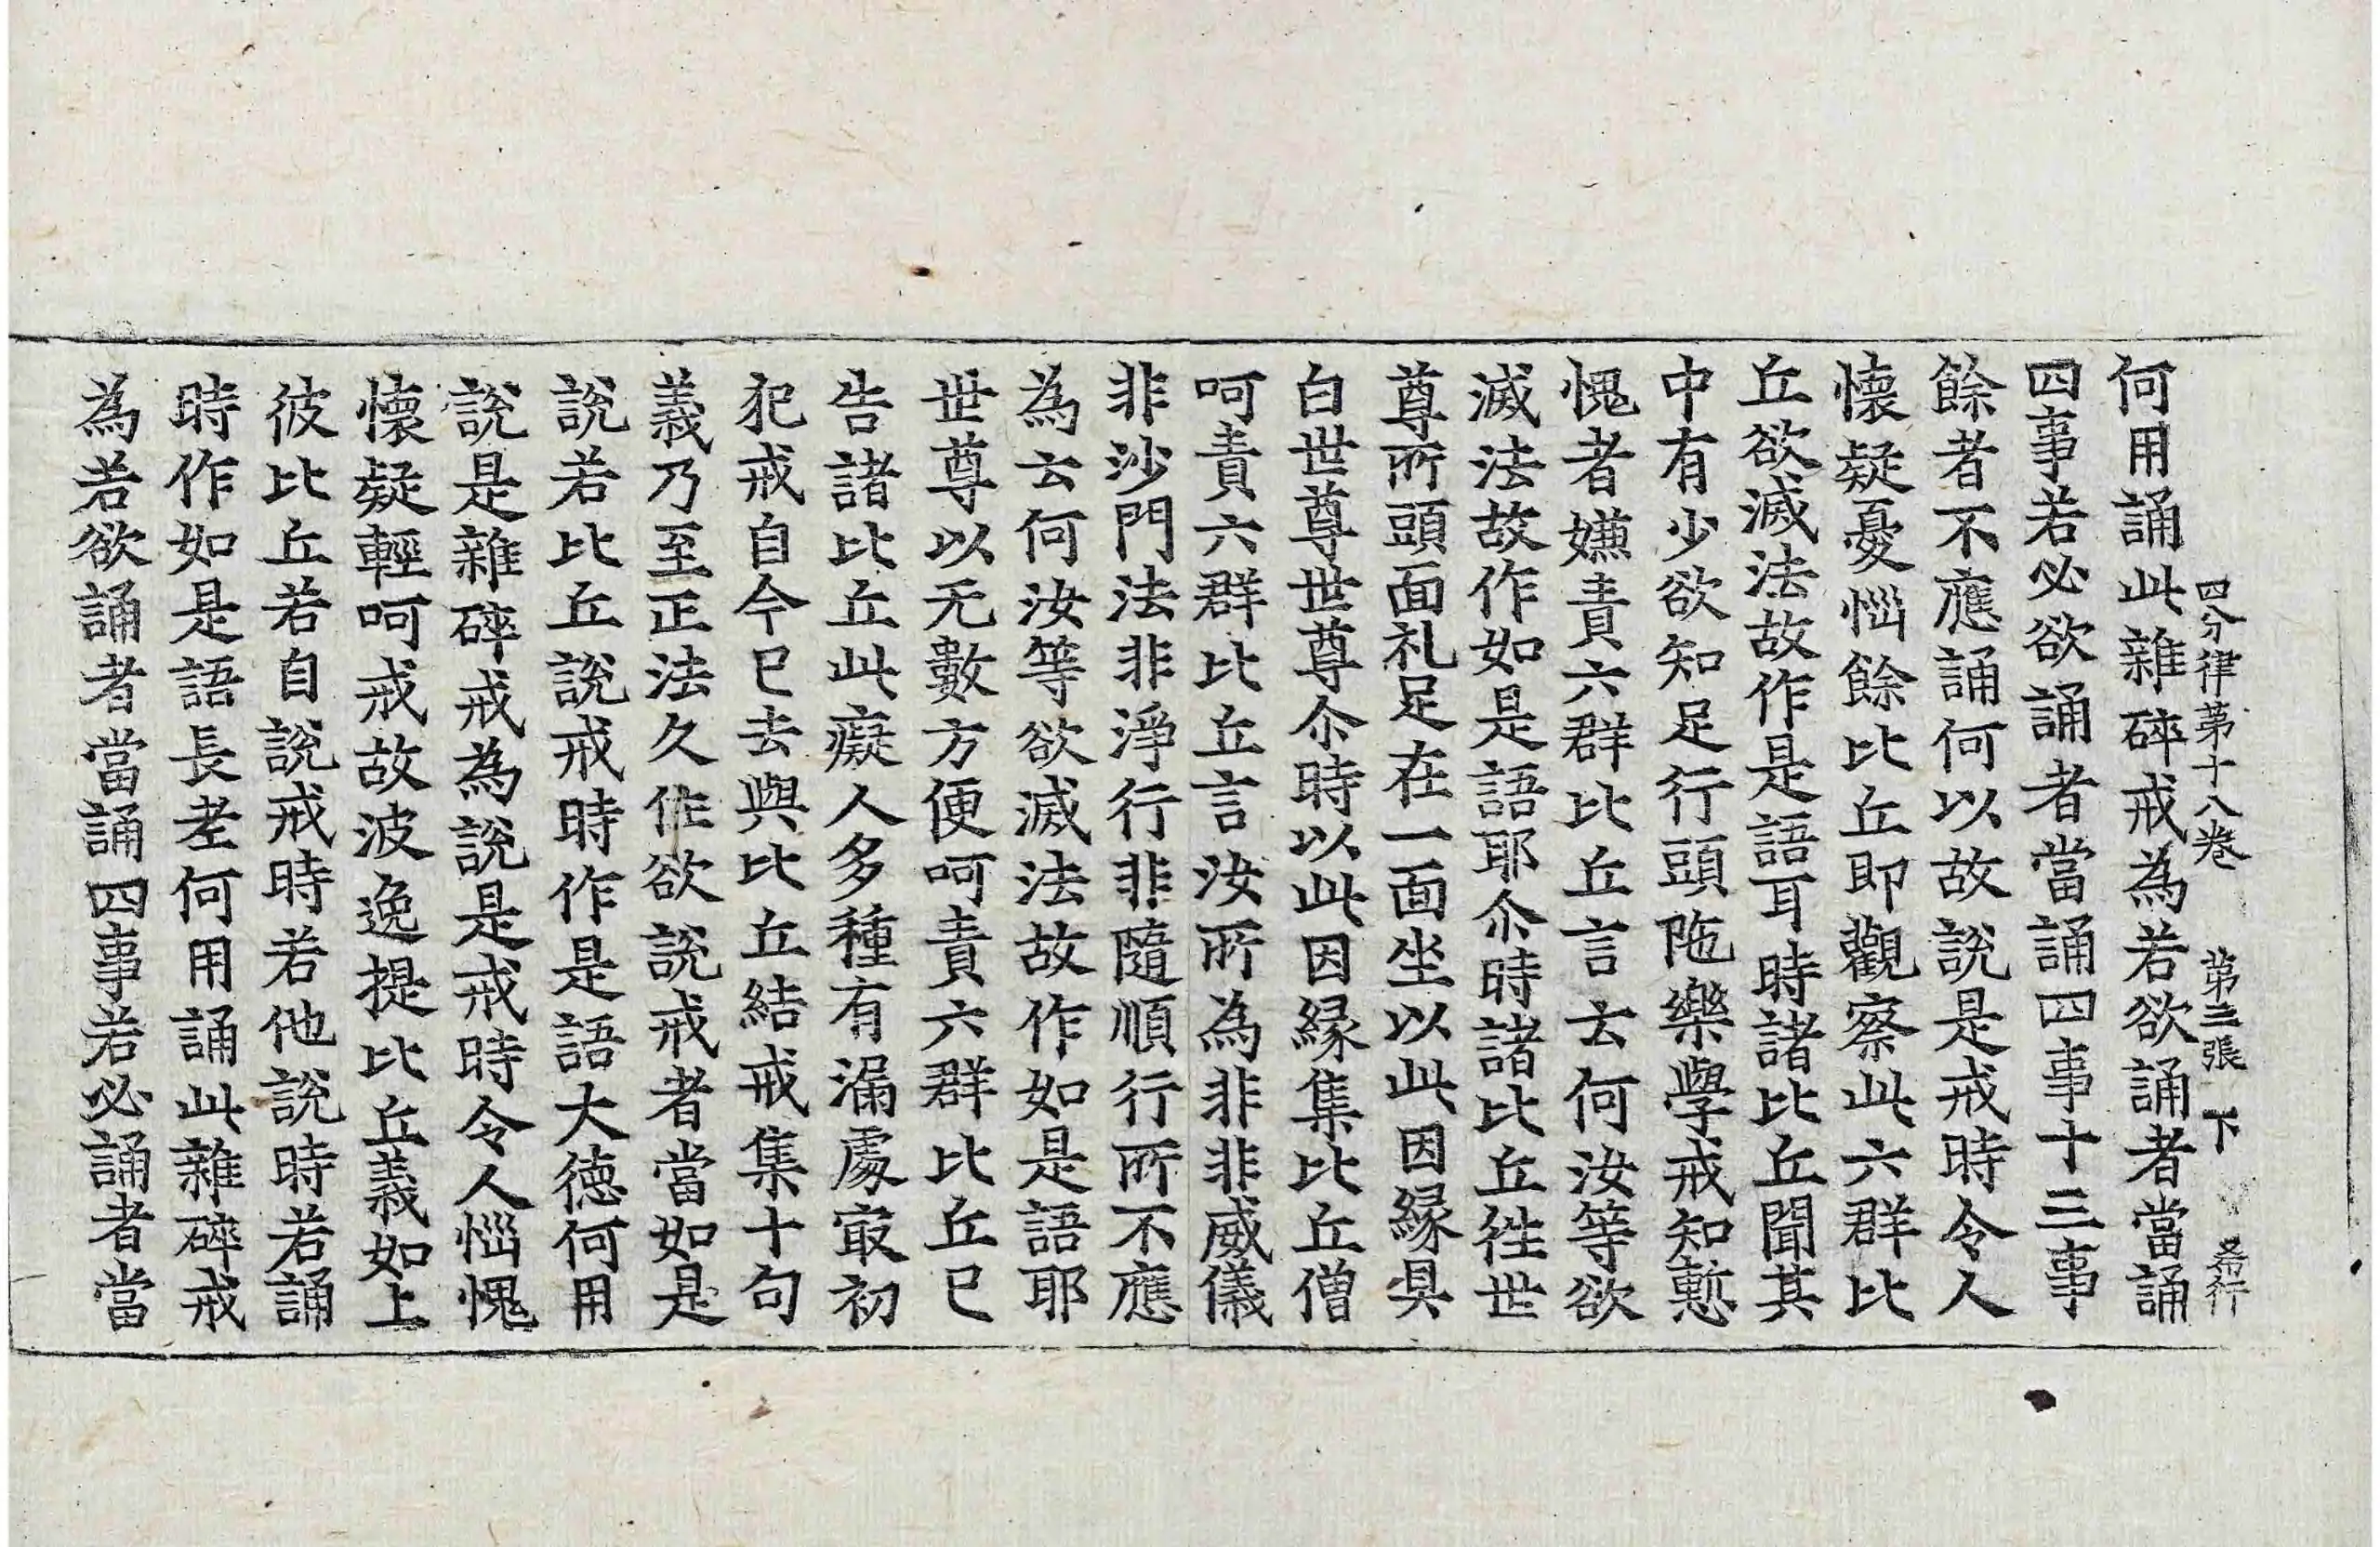 四分律第十八卷 第三張 下 希行
何用誦此雜碎戒為若欲誦者當誦
四事若必欲誦者當誦四事十三事
餘者不應誦何以故說是戒時令人
懷疑憂惱餘比丘即觀察此六群比
丘欲滅法故作是語耳時諸比丘聞其
中有少欲知足行頭陁樂學戒知慙
愧者嫌責六群比丘言云何汝等欲
滅法故作如是語耶尒時諸比丘徃世
尊所頭面礼足在一面坐以此因緣具
白世尊世尊尒時以此因緣集比丘僧
呵責六群比丘言汝所為非非威儀
非沙門法非淨行非隨順行所不應
為云何汝等欲滅法故作如是語耶
世尊以无數方便呵責六群比丘已
告諸比丘此癡人多種有漏處㝡初
犯戒自今已去與比丘結戒集十句
義乃至正法久住欲說戒者當如是
說若比丘說戒時作是語大德何用
說是雜碎戒為說是戒時令人惱愧
懷疑輕呵戒故波逸提比丘義如上
彼比丘若自說戒時若他說時若誦
時作如是語長老何用誦此雜碎戒
為若欲誦者當誦四事若必誦者當